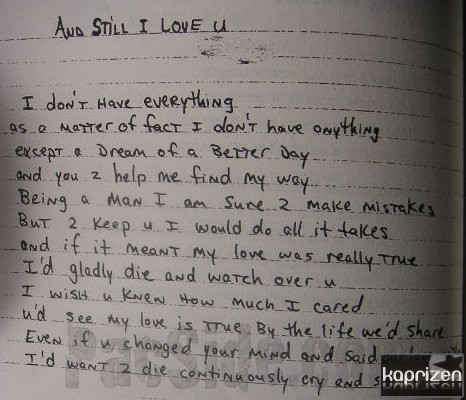 And Still I Love u
I don't Have everything
as a matter of fact I don't have anything
except a Dream of a Better Day
and you 2 help me find my way
Being a man I am Sure 2 make mistakes
But 2 keep u I would do all it takes
and if it meant my love was really True
I'd gladly die and watch over u
I wish u knew How much I cared
u'd see my love is True By the life we'd Share
Even if u changed your mind and said
I'd want 2 die continuously cry and
kaprizen